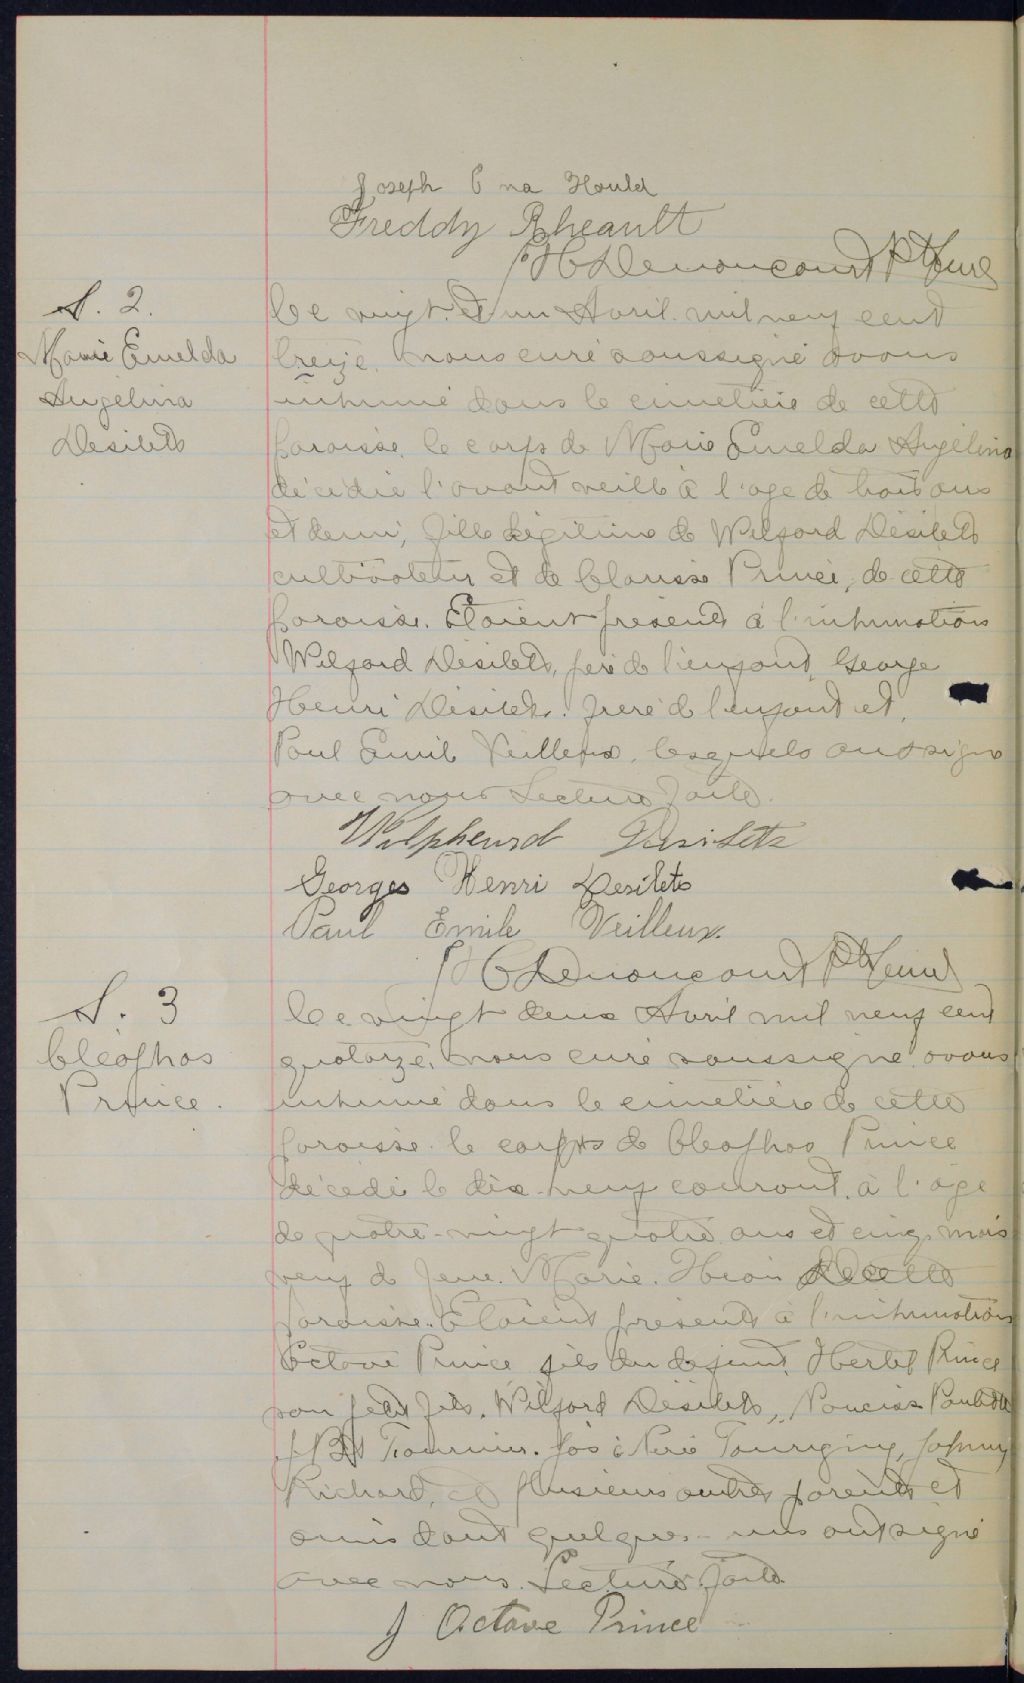 Joseph Ena Hould
Freddy Rheault
J H C Denoncourt Ptre Curé
S. 2.
Marie Emelda
Angelina
Desilets
Le vingt et un Avril mil neuf cent
treize nous curé soussigné avons
inhumé dans le cimetière de cette
paroisse le corps de Marie Emelda Angélina
décédée l'avant veille à l'age de trois ans
et demi, fille légitime de Wilfard Désilets
cultivateur et de Clarisse Prince, de cette
paroisse. Etaient présents à l'inhumation
Wilfard Désilets, père de l'enfant, George
Henri Désilets. frère de l'enfant et,
Paul Emile Veilleux, lesquels ont signé
avec nous Lecture faite.
Wilpheard Desilets
Georges Henri Desilets
Paul Emile Veilleux.
J H C Denoncourt Ptre Curé
S. 3
Cléophas
Prince.
Le vingt deux Avril mil neuf cent
quatorze, nous curé soussigné avons
inhumé dans le cimetière de cette
paroisse le corps de Cleophas Prince
décédé le dix-neuf courant, à l'age
de quatre-vingt quatre ans et cinq mois
veuf de feue Marie Héon de cette
paroisse. Etaient présents à l'inhumation
Octave Prince fils du defunt, Hertel Prince
son petit fils, Wilfard Désilets, Narcisse
J Bte Tournier. Tourigny, Johnny
Richard, et plusieurs autres parents et
amis dont quelques-uns ont signé
avec nous. Lecture faite
J Octave Prince